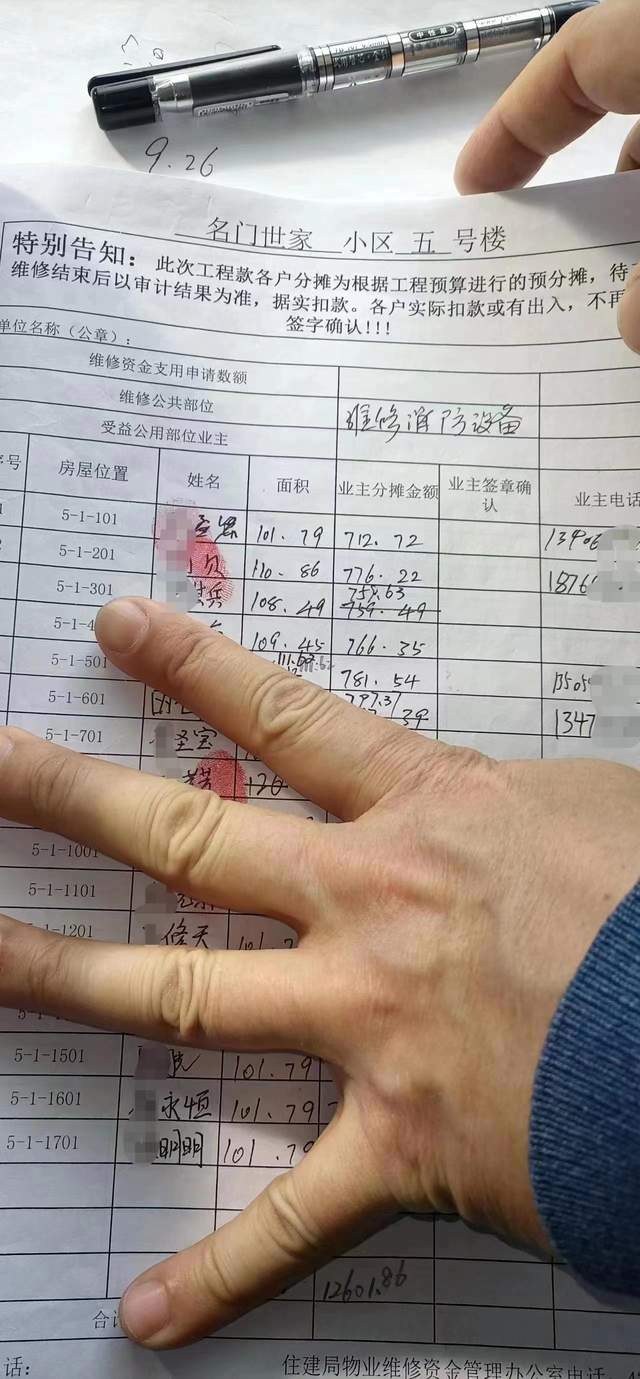 9.26
名门世家 小区 五 号楼
特别告知：此次工程款各户分摊为根据工程预算进行的预分摊，待
维修结束后以审计结果为准，据实扣款。各户实际扣款或有出入，不再
签字确认!!!
单位名称（公章）：
维修资金支用申请数额
维修公共部位 维修消防设备
受益公用部位业主
序号 房屋位置 姓名 面积 业主分摊金额 业主签章确认 业主电话
5-1-101 101.79 712.72
5-1-201 110.86 776.22 1876
5-1-301 兵 108.49 758.63 759.49
5-1-4 109.45 766.35
5-1-501 111.62 781.54
5-1-601 797.31 39 1347
5-1-701 圣宝
126
5-1-1001
5-1-1101
-1201 修天 101.7
5-1-1501 101.79
5-1-1601 永恒 101.79
5-1-1701 明明 101.79
12601.86
合
话： 住建局物业维修资金管理办公室电话：